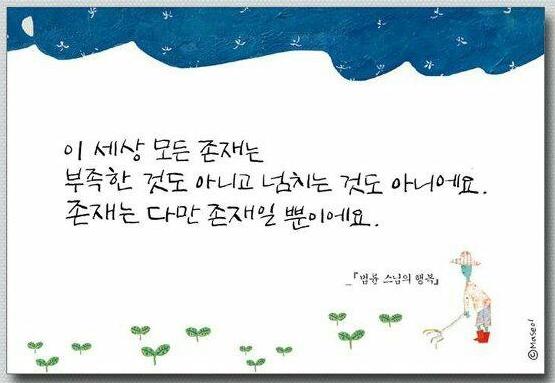 이 세상 모든 존재는
부족한 것도 아니고 넘치는 것도 아니에요.
존재는 다만 존재일 뿐이에요.
_『법륜 스님의 행복』
©Maseol